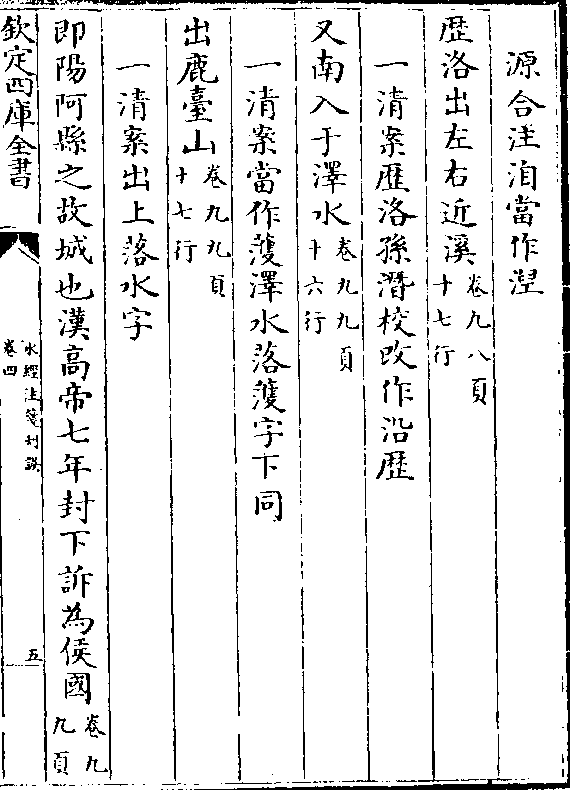 源合注洎當作湼
歴洛出左右近溪卷九八頁十七行
一清案歴洛孫潛校改作沿歴
又南入于澤水卷九九頁十六行
一清案當作濩澤水落濩字下同
出鹿臺山卷九九頁十七行
一清案出上落水字
即陽阿縣之故城也漢高帝七年封下訢為侯國卷九九頁
欽定四庫全書
水經注箋刊誤
卷四
五